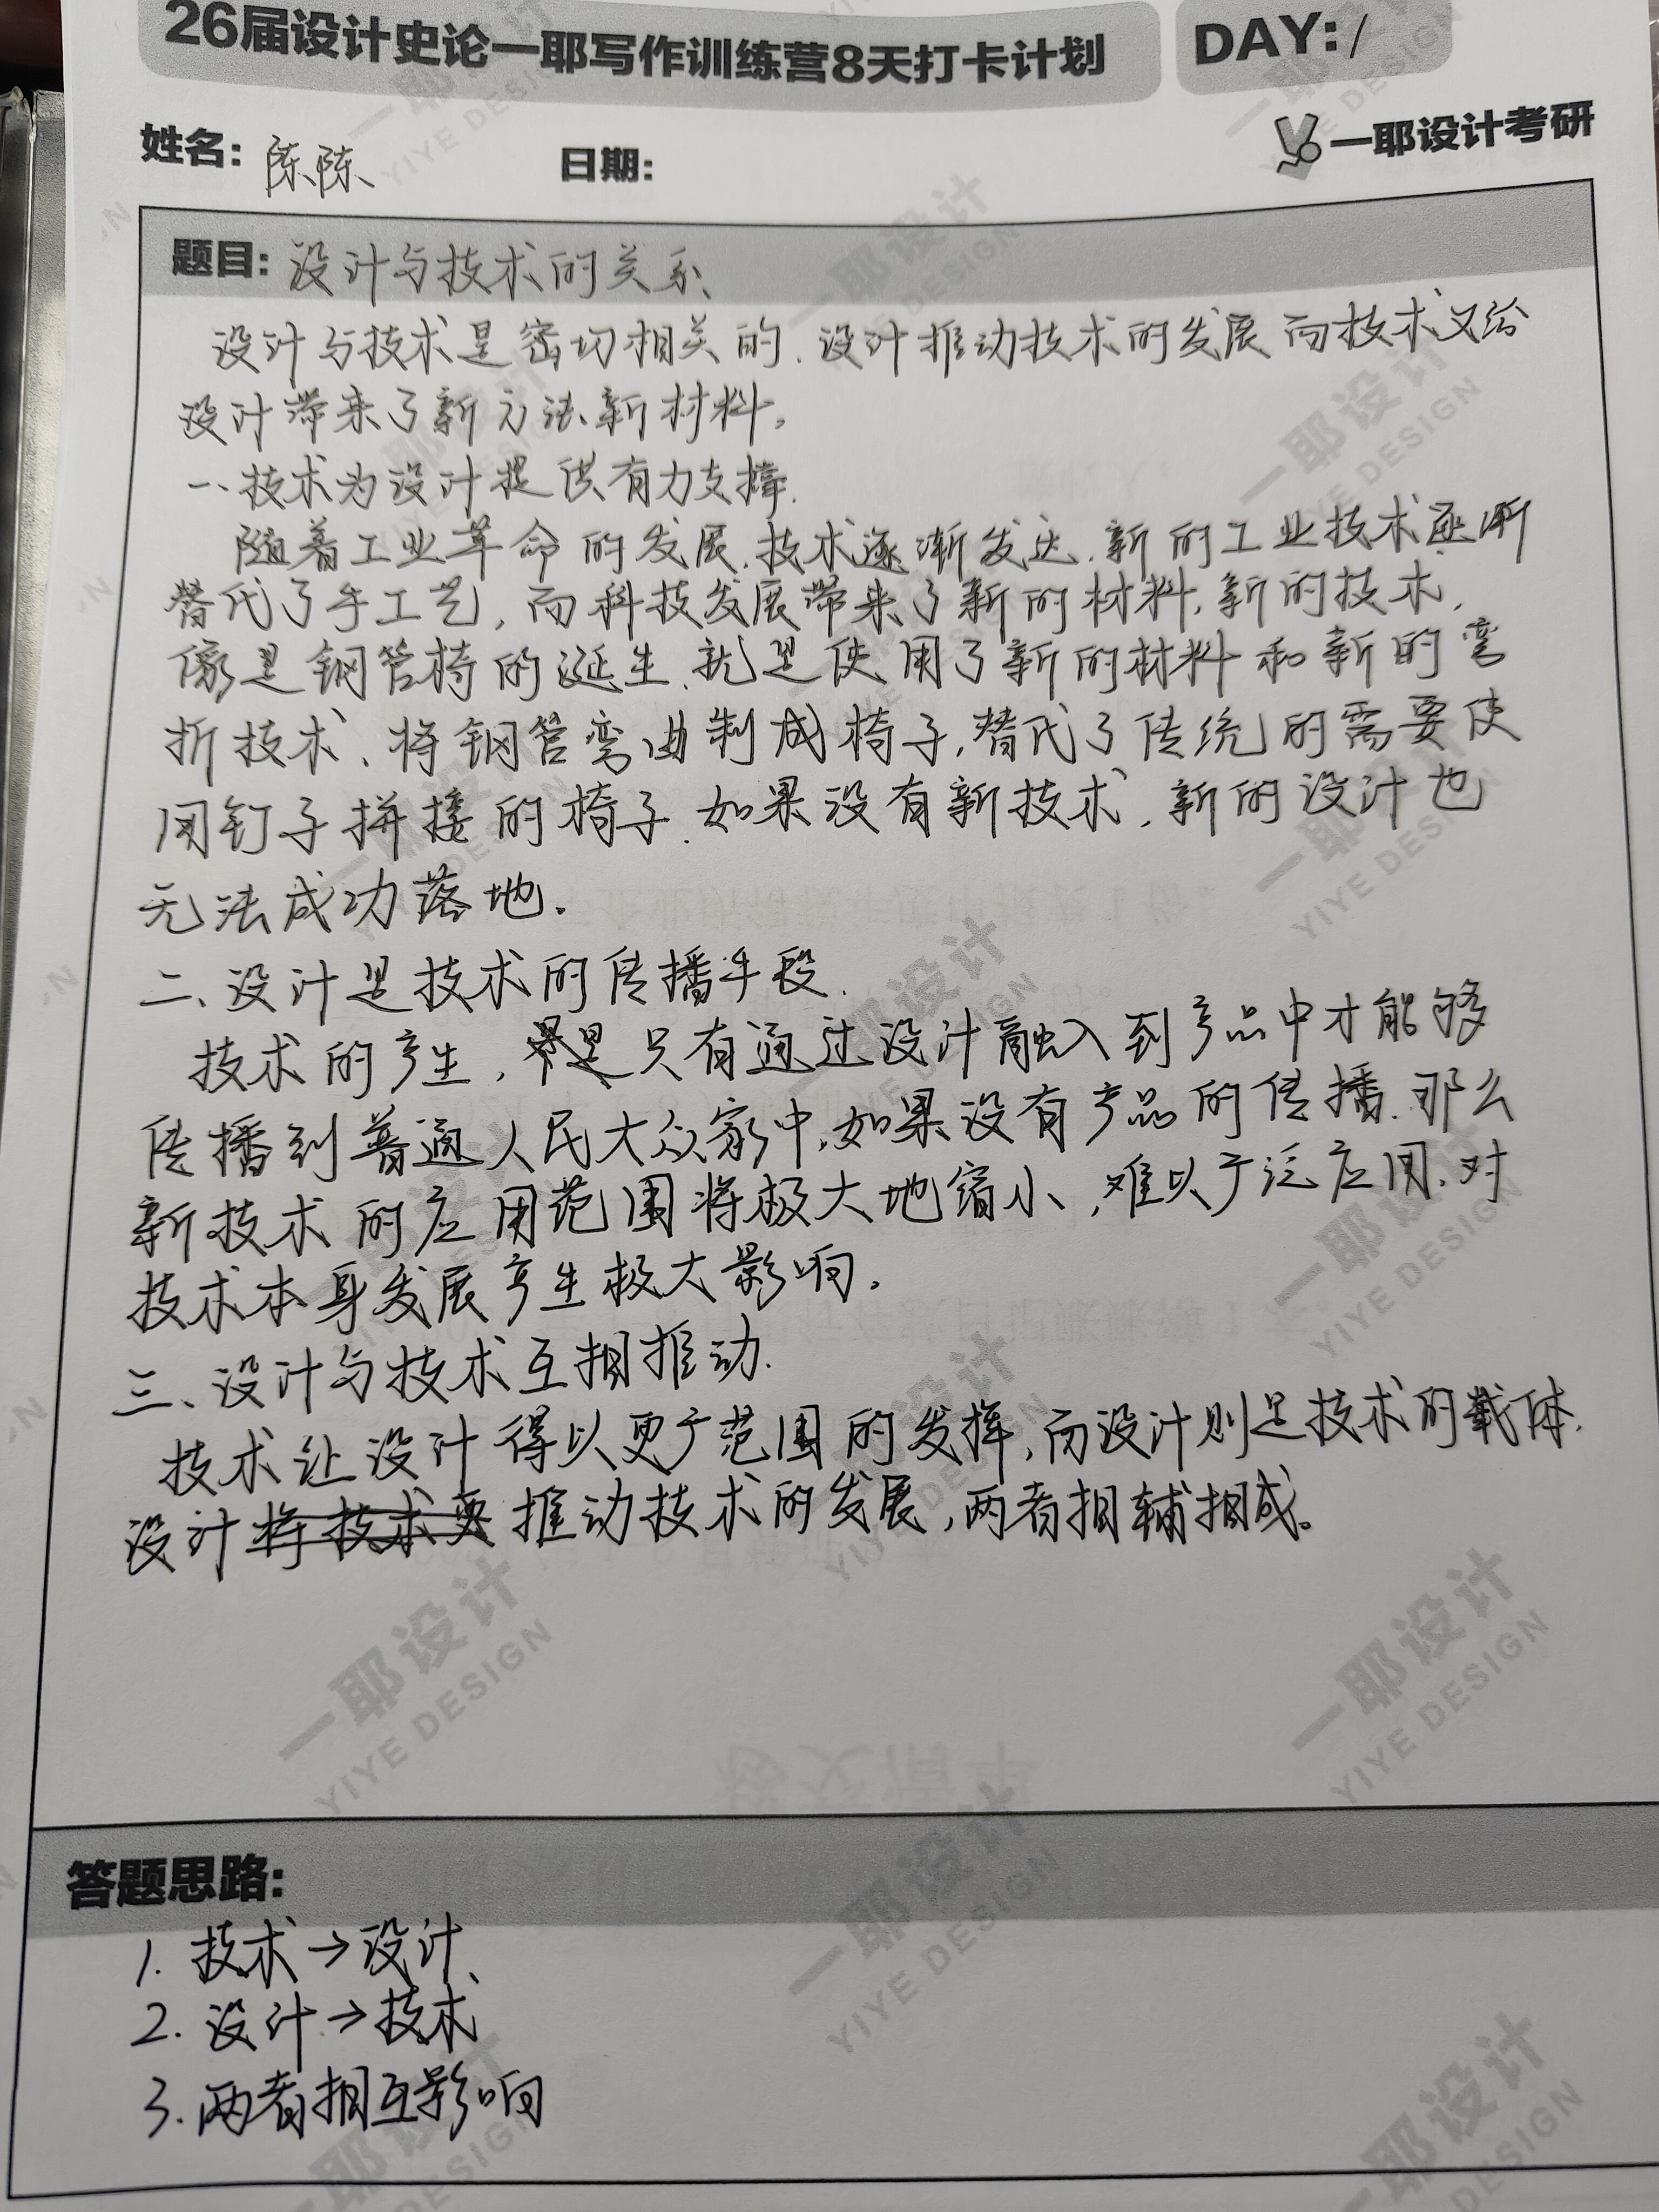 26届设计史论一耶写作训练营8天打卡计划
DAY:1
姓名:陈陈
日期:
一耶设计考研
题目:设计与技术的关系
设计与技术是密切相关的,设计推动技术的发展而技术又给
设计带来了新方法、新材料。
一、技术为设计提供有力支撑.
随着工业革命的发展,技术逐渐发达,新的工业技术逐渐
替代了手工艺,而科技发展带来了新的材料,新的技术,
像是钢管椅的诞生,就是使用了新的材料和新的弯
折技术、将钢管弯曲制成椅子,替代了传统的需要使
用钉子拼接的椅子.如果没有新技术,新的设计也
无法成功落地.
二、设计是技术的传播手段.
技术的产生,只有通过设计融入到产品中才能够
传播到普通人民大众家中,如果没有产品的传播.那么
新技术的应用范围将极大地缩小,难以广泛应用,对
技术本身发展产生极大影响。
三、设计与技术互相推动.
技术让设计得以更广范围的发挥,而设计则是技术的载体,
设计将技术更推动技术的发展,两者相辅相成。
答题思路:
1. 技术→设计
2. 设计→技术
3. 两者相互影响
一耶设计
YIYE DESIGN